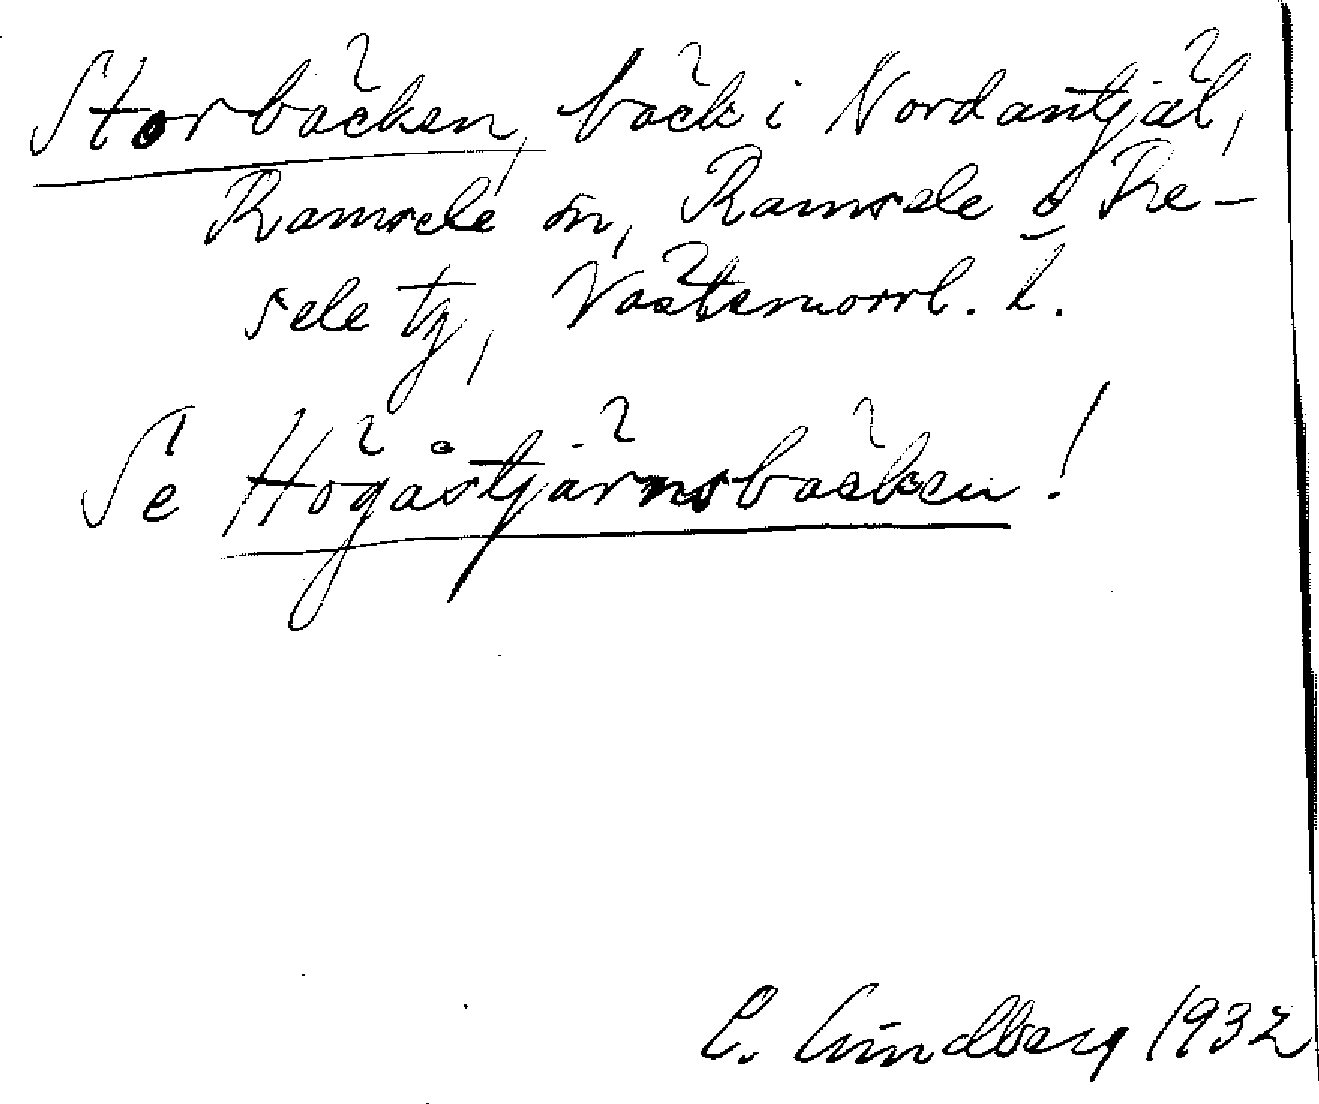 Storbäcken, bäck i Nordantjäl,
Ramsele sn, Ramsele o Re-
sele tg, Västernorrl. l.
Se Högåstjärnsbäcken!
E. Lundberg 1932